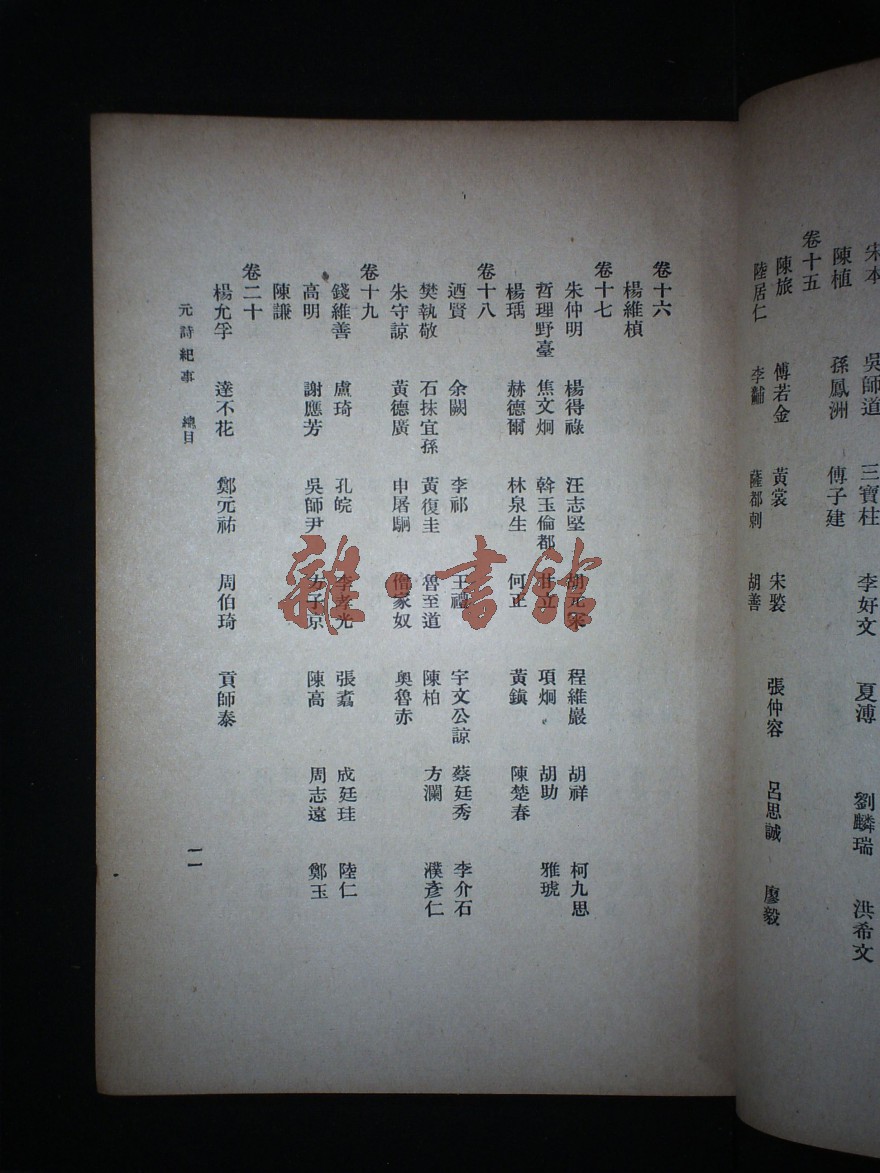 宋本　吳師道　三寶柱　李好文　夏溥　劉麟瑞　洪希文
陳植　孫鳳洲　傅子建
卷十五
陳旅　傅若金　黃裳　宋褧　張仲容　呂思誠　廖毅
陸居仁　李黼　薩都剌　胡善
卷十六
楊維楨
卷十七
朱仲明　楊得祿　汪志堅　程維巖　胡祥　柯九思
哲理野臺　焦文炯　斡玉倫都　項炯　胡助　雅琥
楊瑀　赫德爾　林泉生　何正　黃鎮　陳楚春
卷十八
迺賢　余闕　李祁　王禮　宇文公諒　蔡廷秀　李介石
樊執敬　石抹宜孫　黃復圭　魯至道　陳柏　方瀾　濮彥仁
朱守諒　黃德廣　申屠駉　偰家奴　奧魯赤
卷十九
錢維善　盧琦　孔皖　李孝光　張翥　成廷珪　陸仁
高明　謝應芳　吳師尹　方子京　陳高　周志遠　鄭玉
陳謙
卷二十
楊允孚　達不花　鄭元祐　周伯琦　貢師泰
元詩紀事　總目
一一
雜·書館